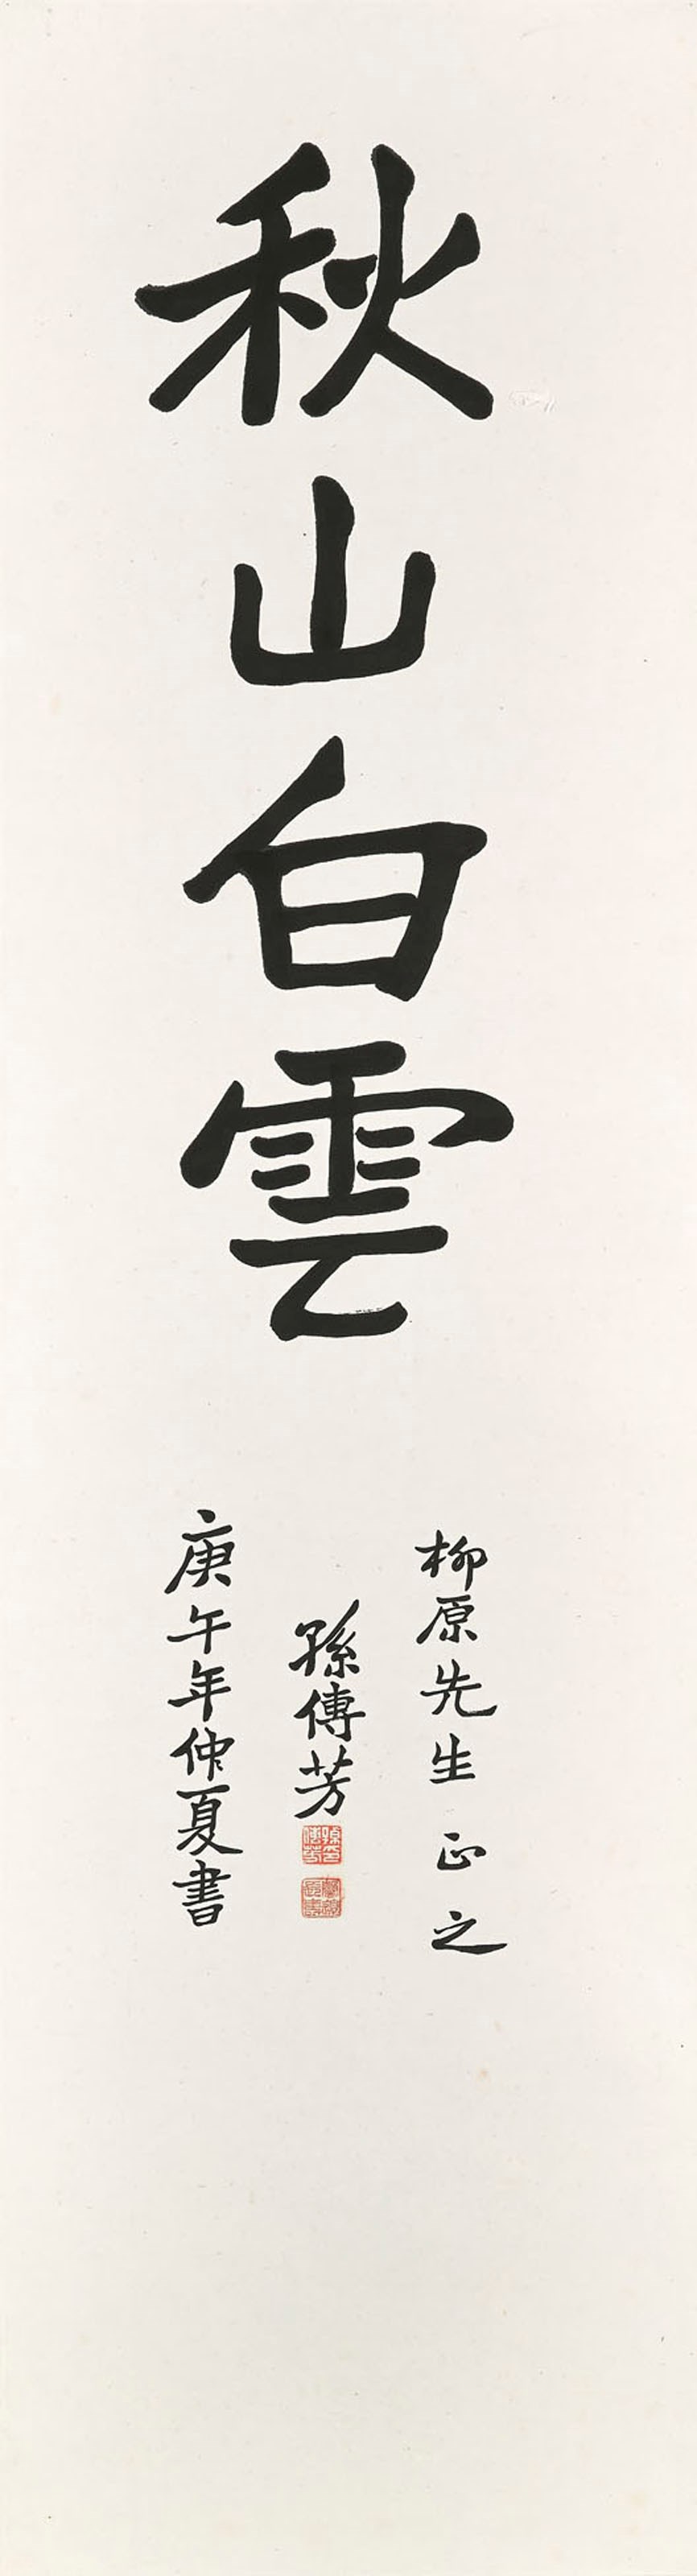 秋山白雲
柳原先生正之
孫傳芳
庚午年仲夏書